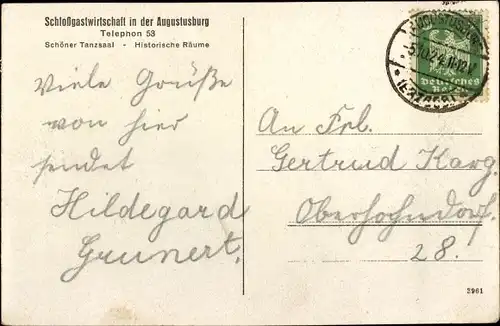 Schloßgastwirtschaft in der Augustusburg
Telephon 53
Schöner Tanzsaal - Historische Räume
Viele Grüße
von hier
sendet
Hildegard
Grunert.
An Frl.
Gertrud Karg.
Oberhohndorf
28.
Deutsches
Reich
3961